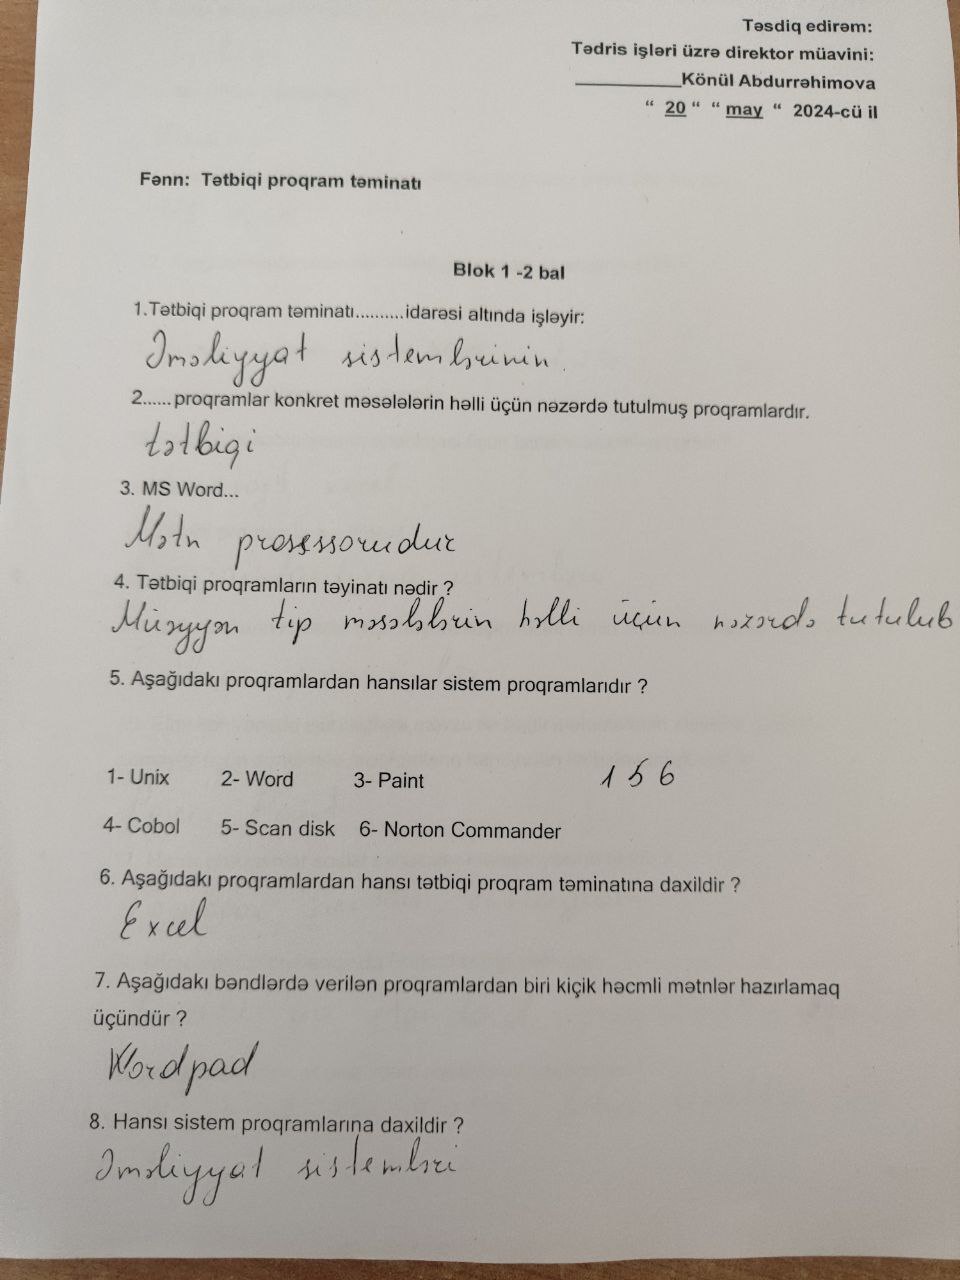 Təsdiq edirəm:
Tədris işləri üzrə direktor müavini:
__________Könül Abdurrəhimova
“ 20 “ “ may “ 2024-cü il
Fənn: Tətbiqi proqram təminatı
Blok 1 -2 bal
1.Tətbiqi proqram təminatı..........idarəsi altında işləyir:
Əməliyyat sistemlərinin.
2...... proqramlar konkret məsələlərin həlli üçün nəzərdə tutulmuş proqramlardır.
tətbiqi
3. MS Word...
Mətn prosessorudur
4. Tətbiqi proqramların təyinatı nədir ?
Müəyyən tip məsələlərin həlli üçün nəzərdə tutulub
5. Aşağıdakı proqramlardan hansılar sistem proqramlarıdır ?
1- Unix 2- Word 3- Paint 1 5 6
4- Cobol 5- Scan disk 6- Norton Commander
6. Aşağıdakı proqramlardan hansı tətbiqi proqram təminatına daxildir ?
Excel
7. Aşağıdakı bəndlərdə verilən proqramlardan biri kiçik həcmli mətnlər hazırlamaq
üçündür ?
Wordpad
8. Hansı sistem proqramlarına daxildir ?
Əməliyyat sistemləri